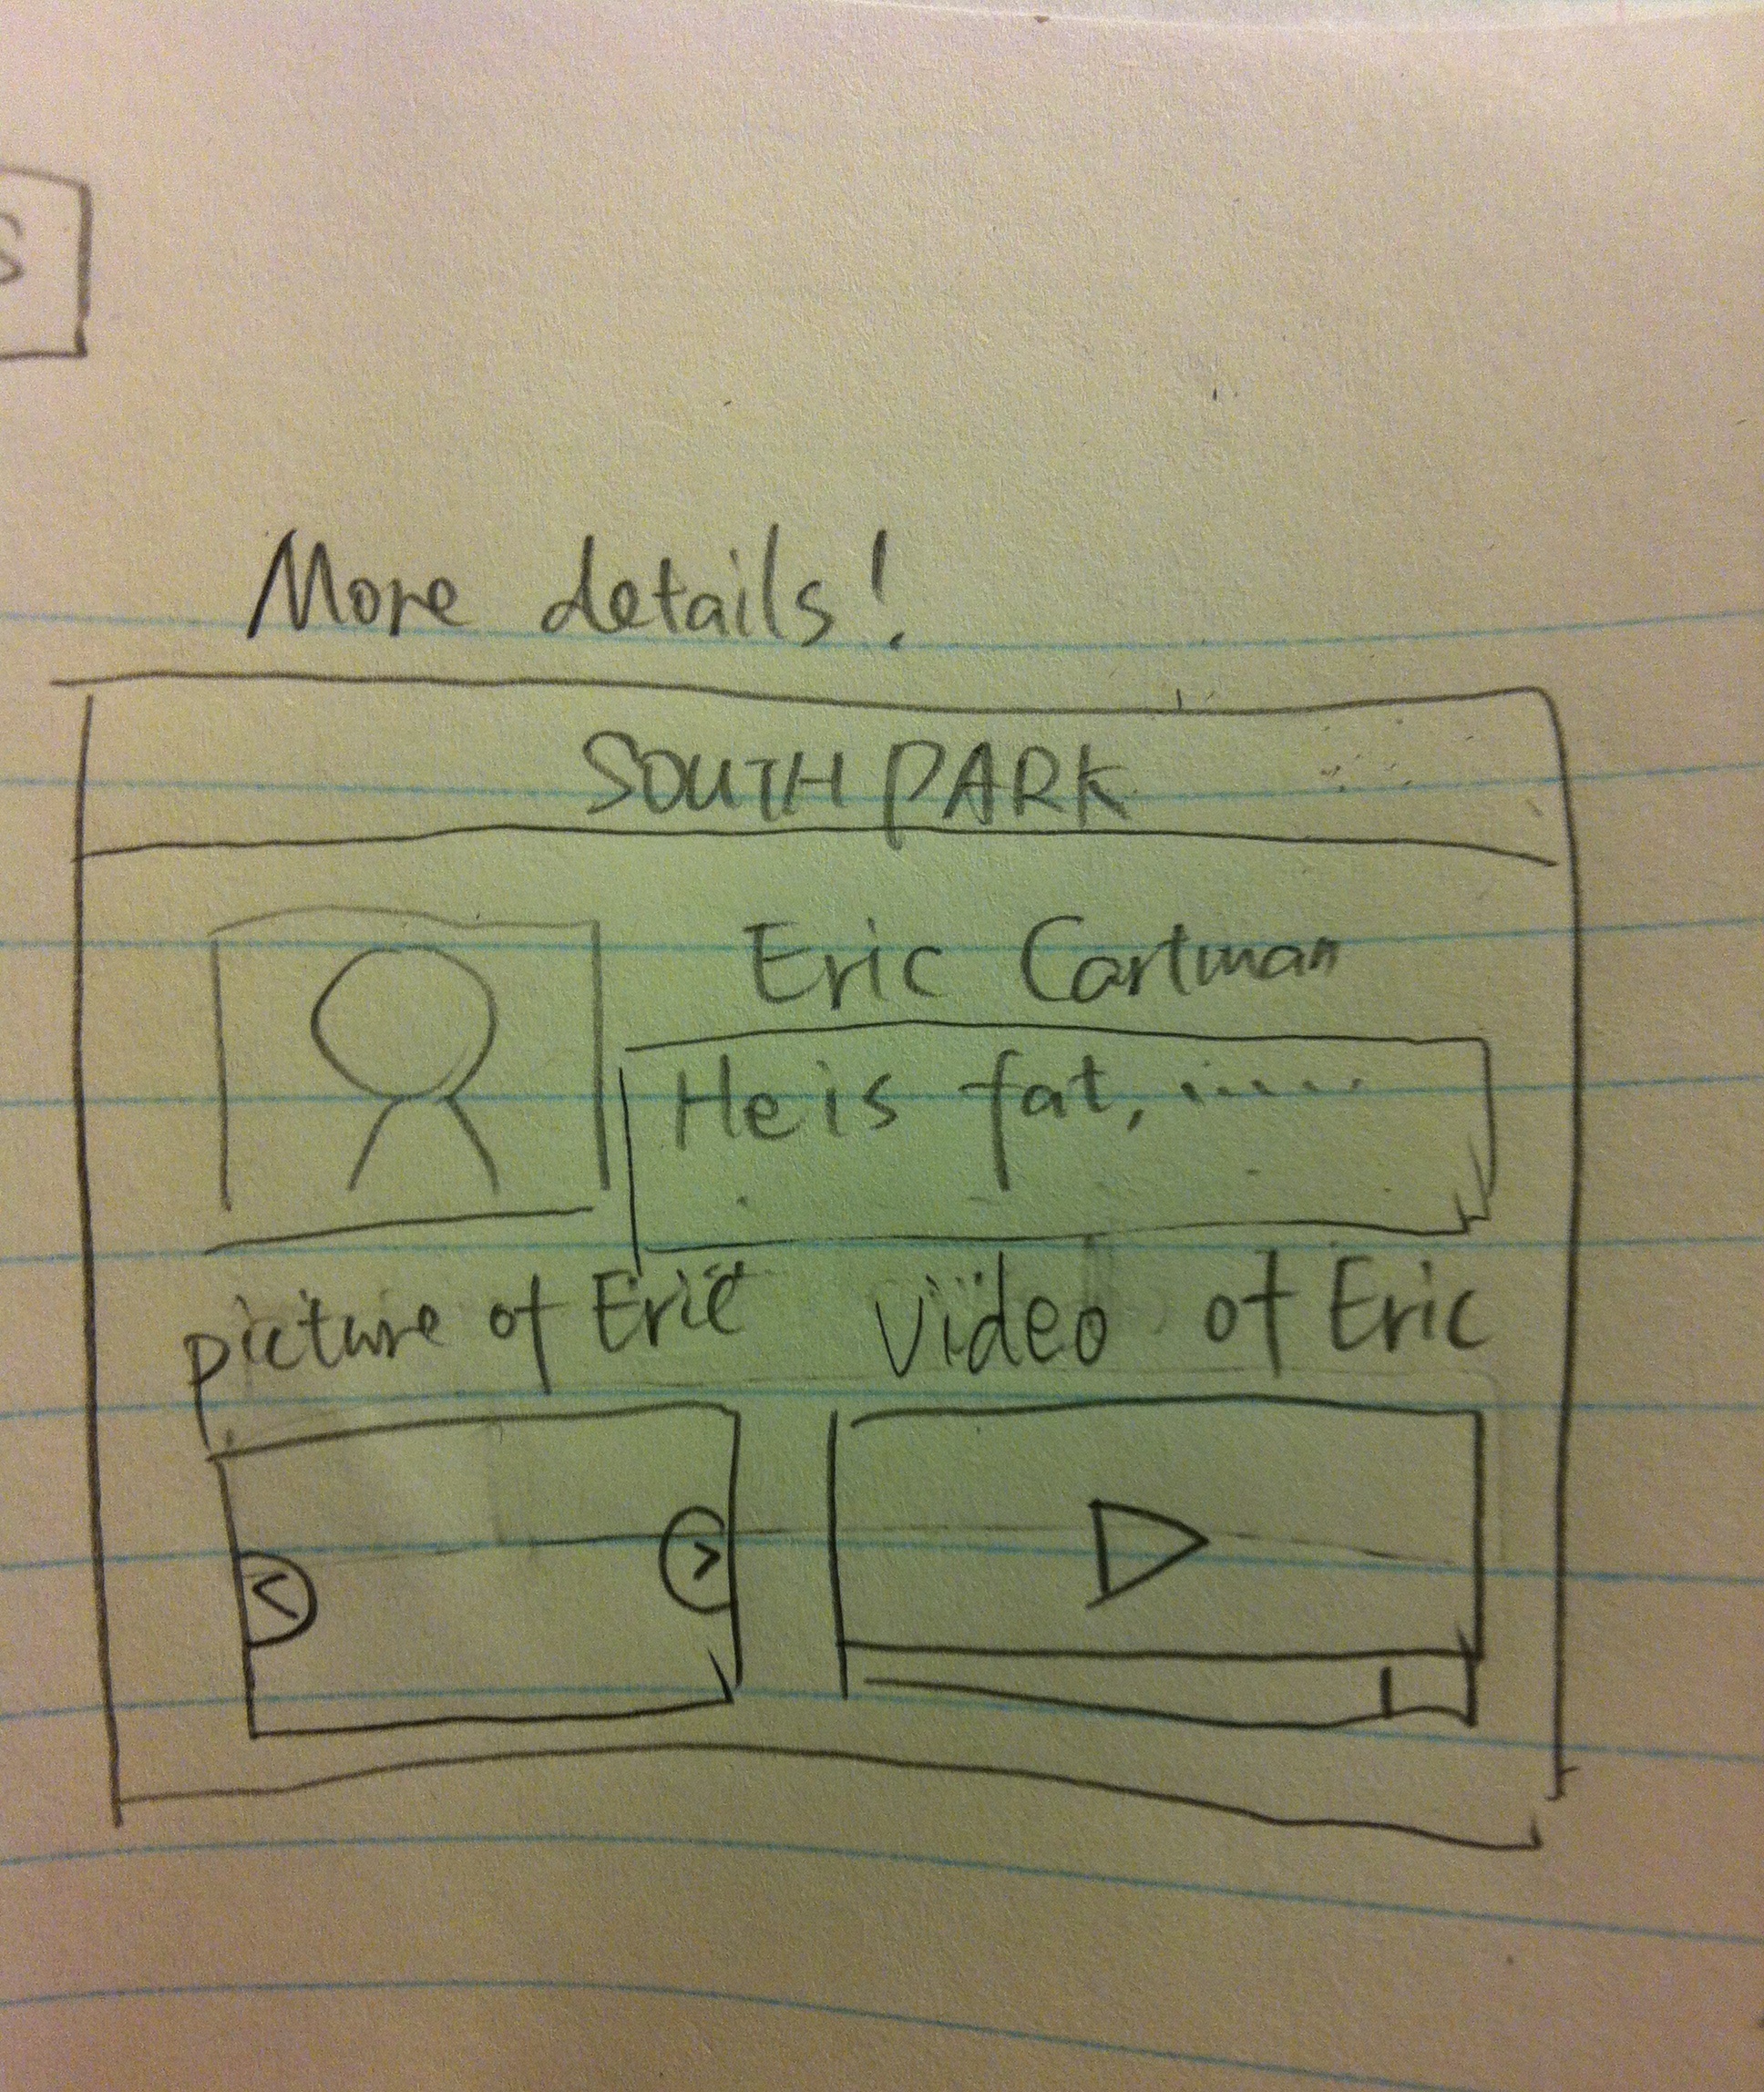 S
More details!
SOUTH PARK
Eric Cartman
He is fat, ......
picture of Eric
Video of Eric
<
>